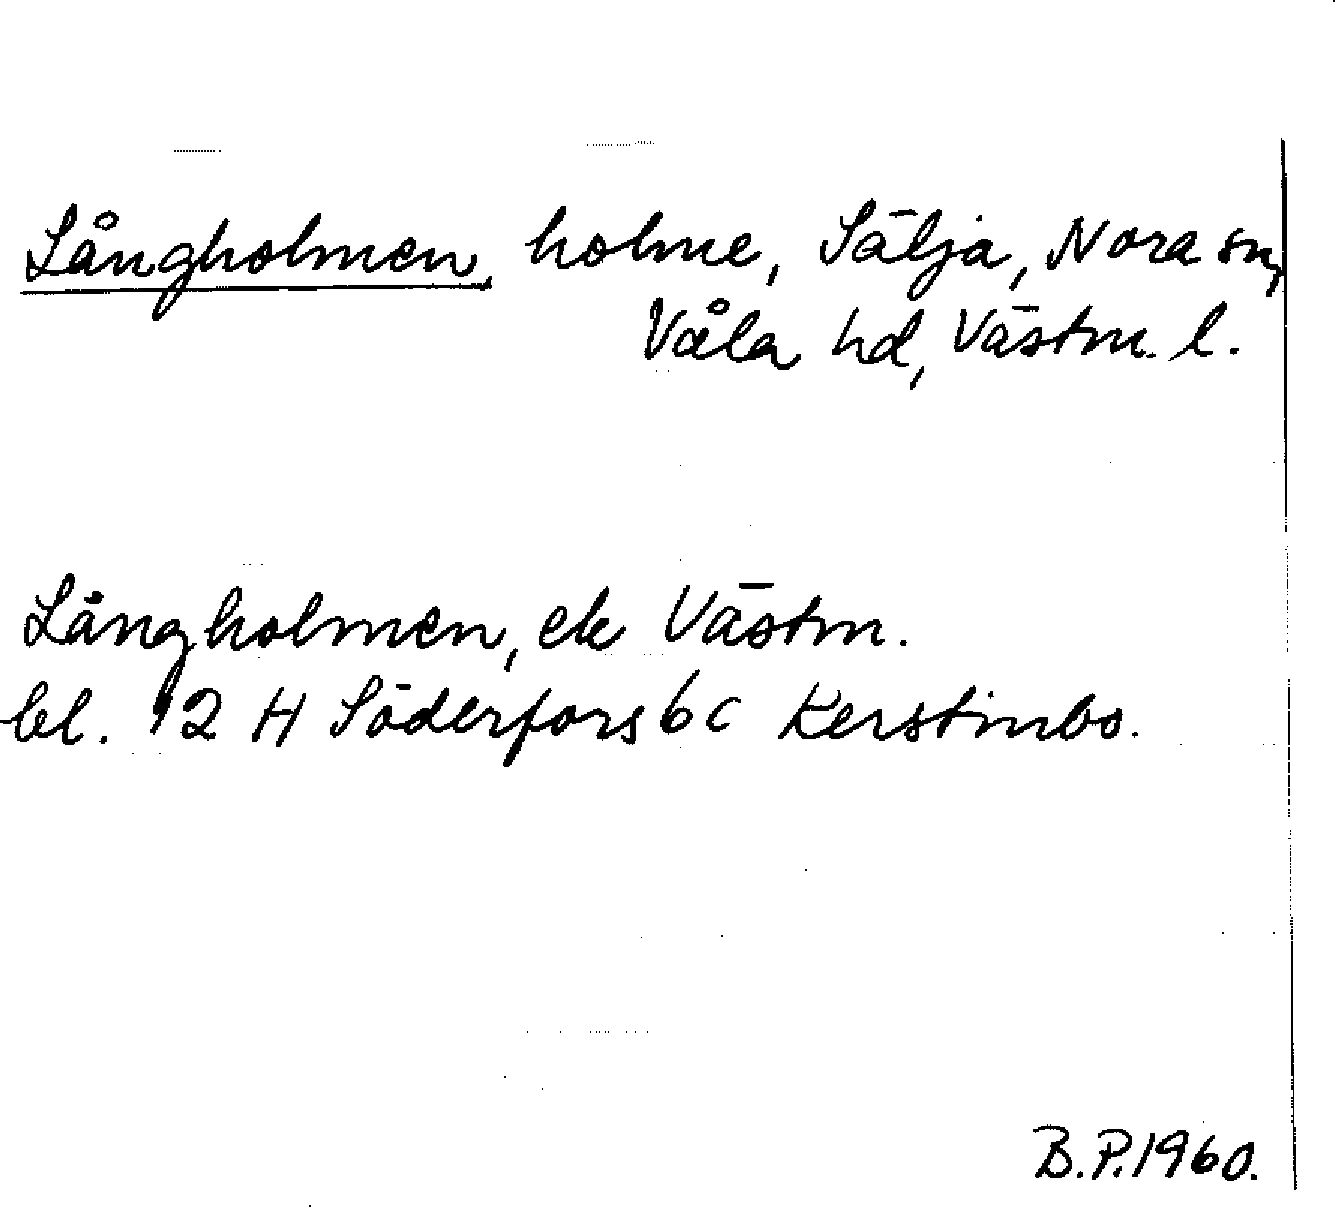 Långholmen, holme, Sälja, Nora sn,
Våla hd, Västm. l.
Långholmen, ek Västm.
bl. 12 H Söderfors 6 c Kerstinbo.
B.P. 1960.